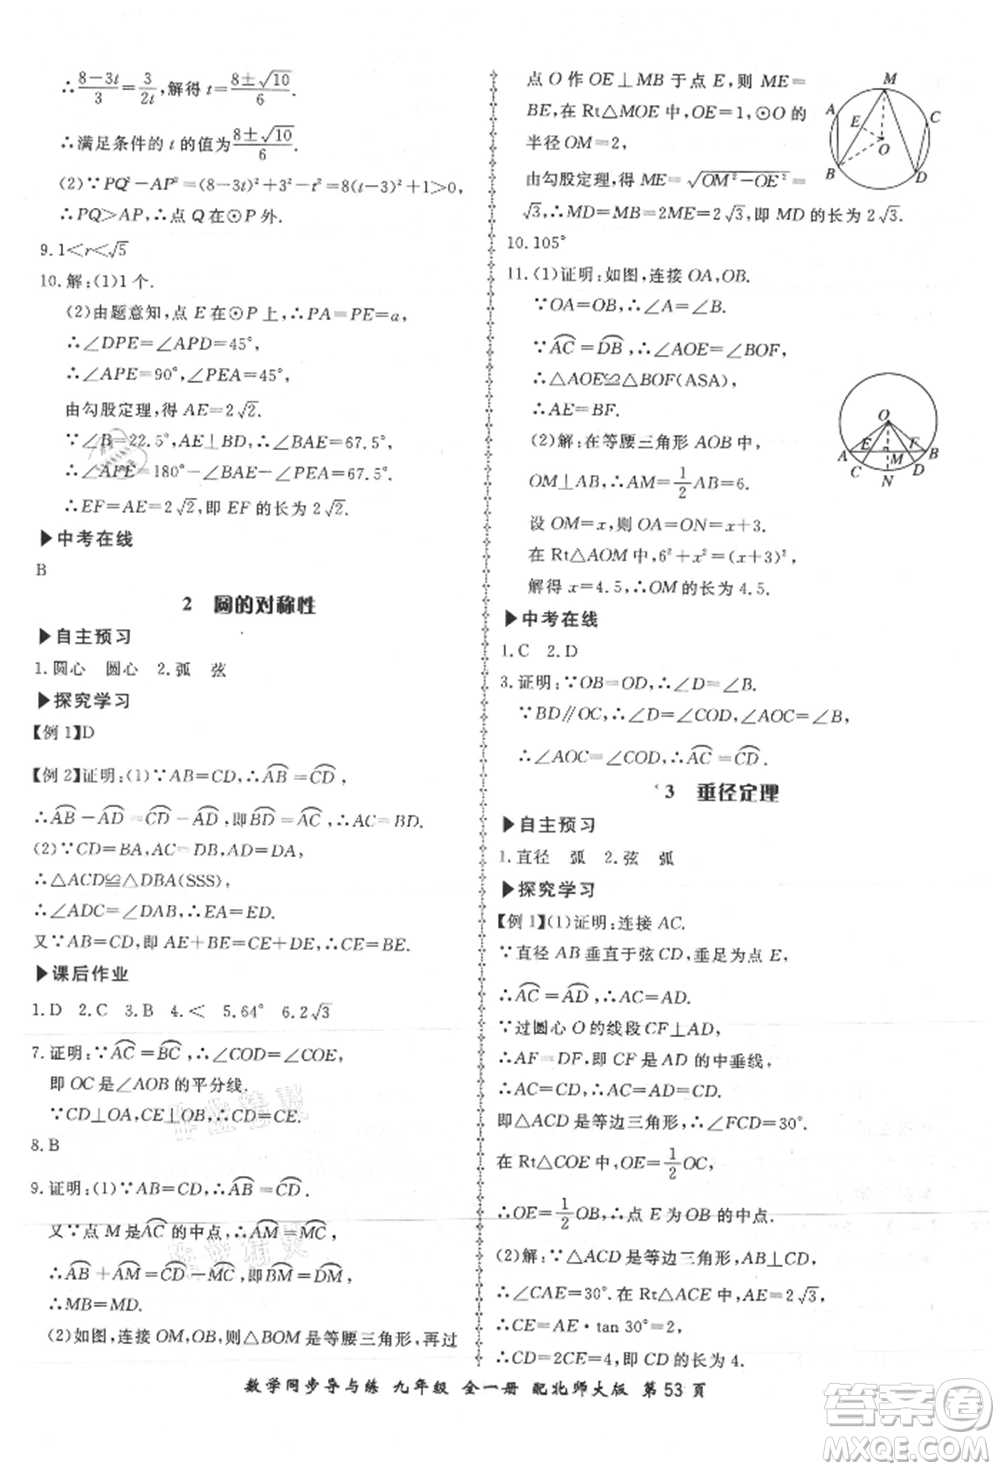 ∴(8-3t)/3=3/(2t),解得 t=(8±√10)/6.
∴满足条件的 t 的值为(8±√10)/6.
(2)∵PQ²-AP²=(8-3t)²+3²-t²=8(t-3)²+1>0,
∴PQ>AP,∴点 Q 在⊙P 外.
9.1<r<√5
10.解:(1)1 个.
(2)由题意知,点 E 在⊙P 上,∴PA=PE=a,
∴∠DPE=∠APD=45°,
∴∠APE=90°,∠PEA=45°,
由勾股定理,得 AE=2√2.
∵∠B=22.5°,AE⊥BD,∴∠BAE=67.5°,
∴∠APE=180°-∠BAE-∠PEA=67.5°.
∴EF=AE=2√2,即 EF 的长为 2√2.
▶中考在线
B
2 圆的对称性
▶自主预习
1.圆心 圆心 2.弧 弦
▶探究学习
【例 1】D
【例 2】证明:(1)∵AB=CD,∴A͡B=C͡D,
∴A͡B-A͡D=C͡D-A͡D,即B͡D=A͡C,∴AC=BD.
(2)∵CD=BA,AC=DB,DA=DA,
∴△ACD≌△DBA(SSS),
∴∠ADC=∠DAB,∴EA=ED.
又∵AB=CD,即 AE+BE=CE+ED,∴CE=BE.
▶课后作业
1.D 2.C 3.B 4.< 5.64° 6.2√3
7.证明:∵A͡C=B͡C,∴∠COD=∠COE,
即 OC 是∠AOB 的平分线.
∵CD⊥OA,CE⊥OB,∴CD=CE.
8.B
9.证明:(1)∵AB=CD,∴A͡B=C͡D.
又∵点 M 是A͡C的中点,∴A͡M=M͡C,
∴A͡B+A͡M=C͡D+M͡C,即B͡M=D͡M,
∴MB=MD.
(2)如图,连接 OM,OB,则△BOM 是等腰三角形,再过
点 O 作 OE⊥MB 于点 E,则 ME=
BE,在 Rt△MOE 中,OE=1,⊙O 的
半径 OM=2,
由勾股定理,得 ME=√(OM²-OE²)=
√3,∴MD=MB=2ME=2√3,即 MD 的长为 2√3.
M
A
C
E
O
B
D
10.105°
11.(1)证明:如图,连接 OA,OB.
∵OA=OB,∴∠A=∠B,
∵A͡C=B͡D,∴∠AOE=∠BOF,
∴△AOE≌△BOF(ASA),
∴AE=BF.
(2)解:在等腰三角形 AOB 中,
OM⊥AB,∴AM=1/2AB=6.
设 OM=x,则 OA=ON=x+3,
在 Rt△AOM 中,6²+x²=(x+3)²,
解得 x=4.5,∴OM 的长为 4.5.
O
A E M F B
C N D
▶中考在线
1.C 2.D
3.证明:∵OB=OD,∴∠D=∠B,
∵BD∥OC,∴∠D=∠COD,∠AOC=∠B,
∴∠AOC=∠COD,∴A͡C=C͡D.
3 垂径定理
▶自主预习
1.直径 弧 2.弦 弧
▶探究学习
【例 1】(1)证明:连接 AC.
∵直径 AB 垂直于弦 CD,垂足为点 E,
∴A͡C=A͡D,∴AC=AD.
∵过圆心 O 的线段 CF⊥AD,
∴AF=DF,即 CF 是 AD 的中垂线,
∴AC=CD,∴AC=AD=CD.
即△ACD 是等边三角形,∴∠FCD=30°.
在 Rt△COE 中,OE=1/2OC,
∴OE=1/2OB,∴点 E 为 OB 的中点.
(2)解:∵△ACD 是等边三角形,
∴∠CAE=30°.在 Rt△ACE 中,AE=2√3,
∴CE=AE·tan 30°=2,
∴CD=2CE=4.
数学同步导与练 九年级 全一册 配北师大版 第 53 页
答案圈
MXQE.COM